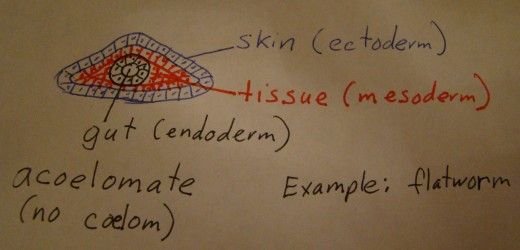 skin (ectoderm)
tissue (mesoderm)
gut (endoderm)
acoelomate
(no cœlom)
Example: flatworm